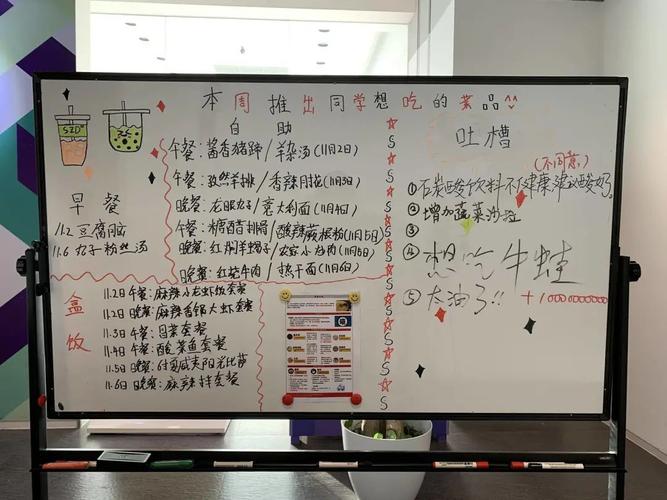 本周推出同学想吃的菜品^^
SZD
自助
午餐:酱香猪蹄/羊杂汤(11月2日)
午餐:孜然羊排/香辣
(11月3日)
晚餐:龙眼丸子/意大利面(11月4日)
午餐:糖醋排骨/酸辣蕨根粉(11月5日)
晚餐:红焖羊蝎子/农家小炒肉(11月5日)
晚餐:红烧牛肉/热干面(11月6日)
早餐
11.2 豆腐脑
11.6 丸子粉丝汤
盒饭
11.2日午餐:麻辣小龙虾饭套餐
11.2日晚餐:麻辣香锅大虾套餐
11.3日午餐:冒菜套餐
11.4日午餐:酸菜鱼套餐
11.5日晚餐:
11.6日晚餐:麻辣拌套餐
吐槽
(不同意)
①碳酸饮料不健康建议酸奶
②增加蔬菜沙拉
③
④想吃牛蛙
⑤太油了!!